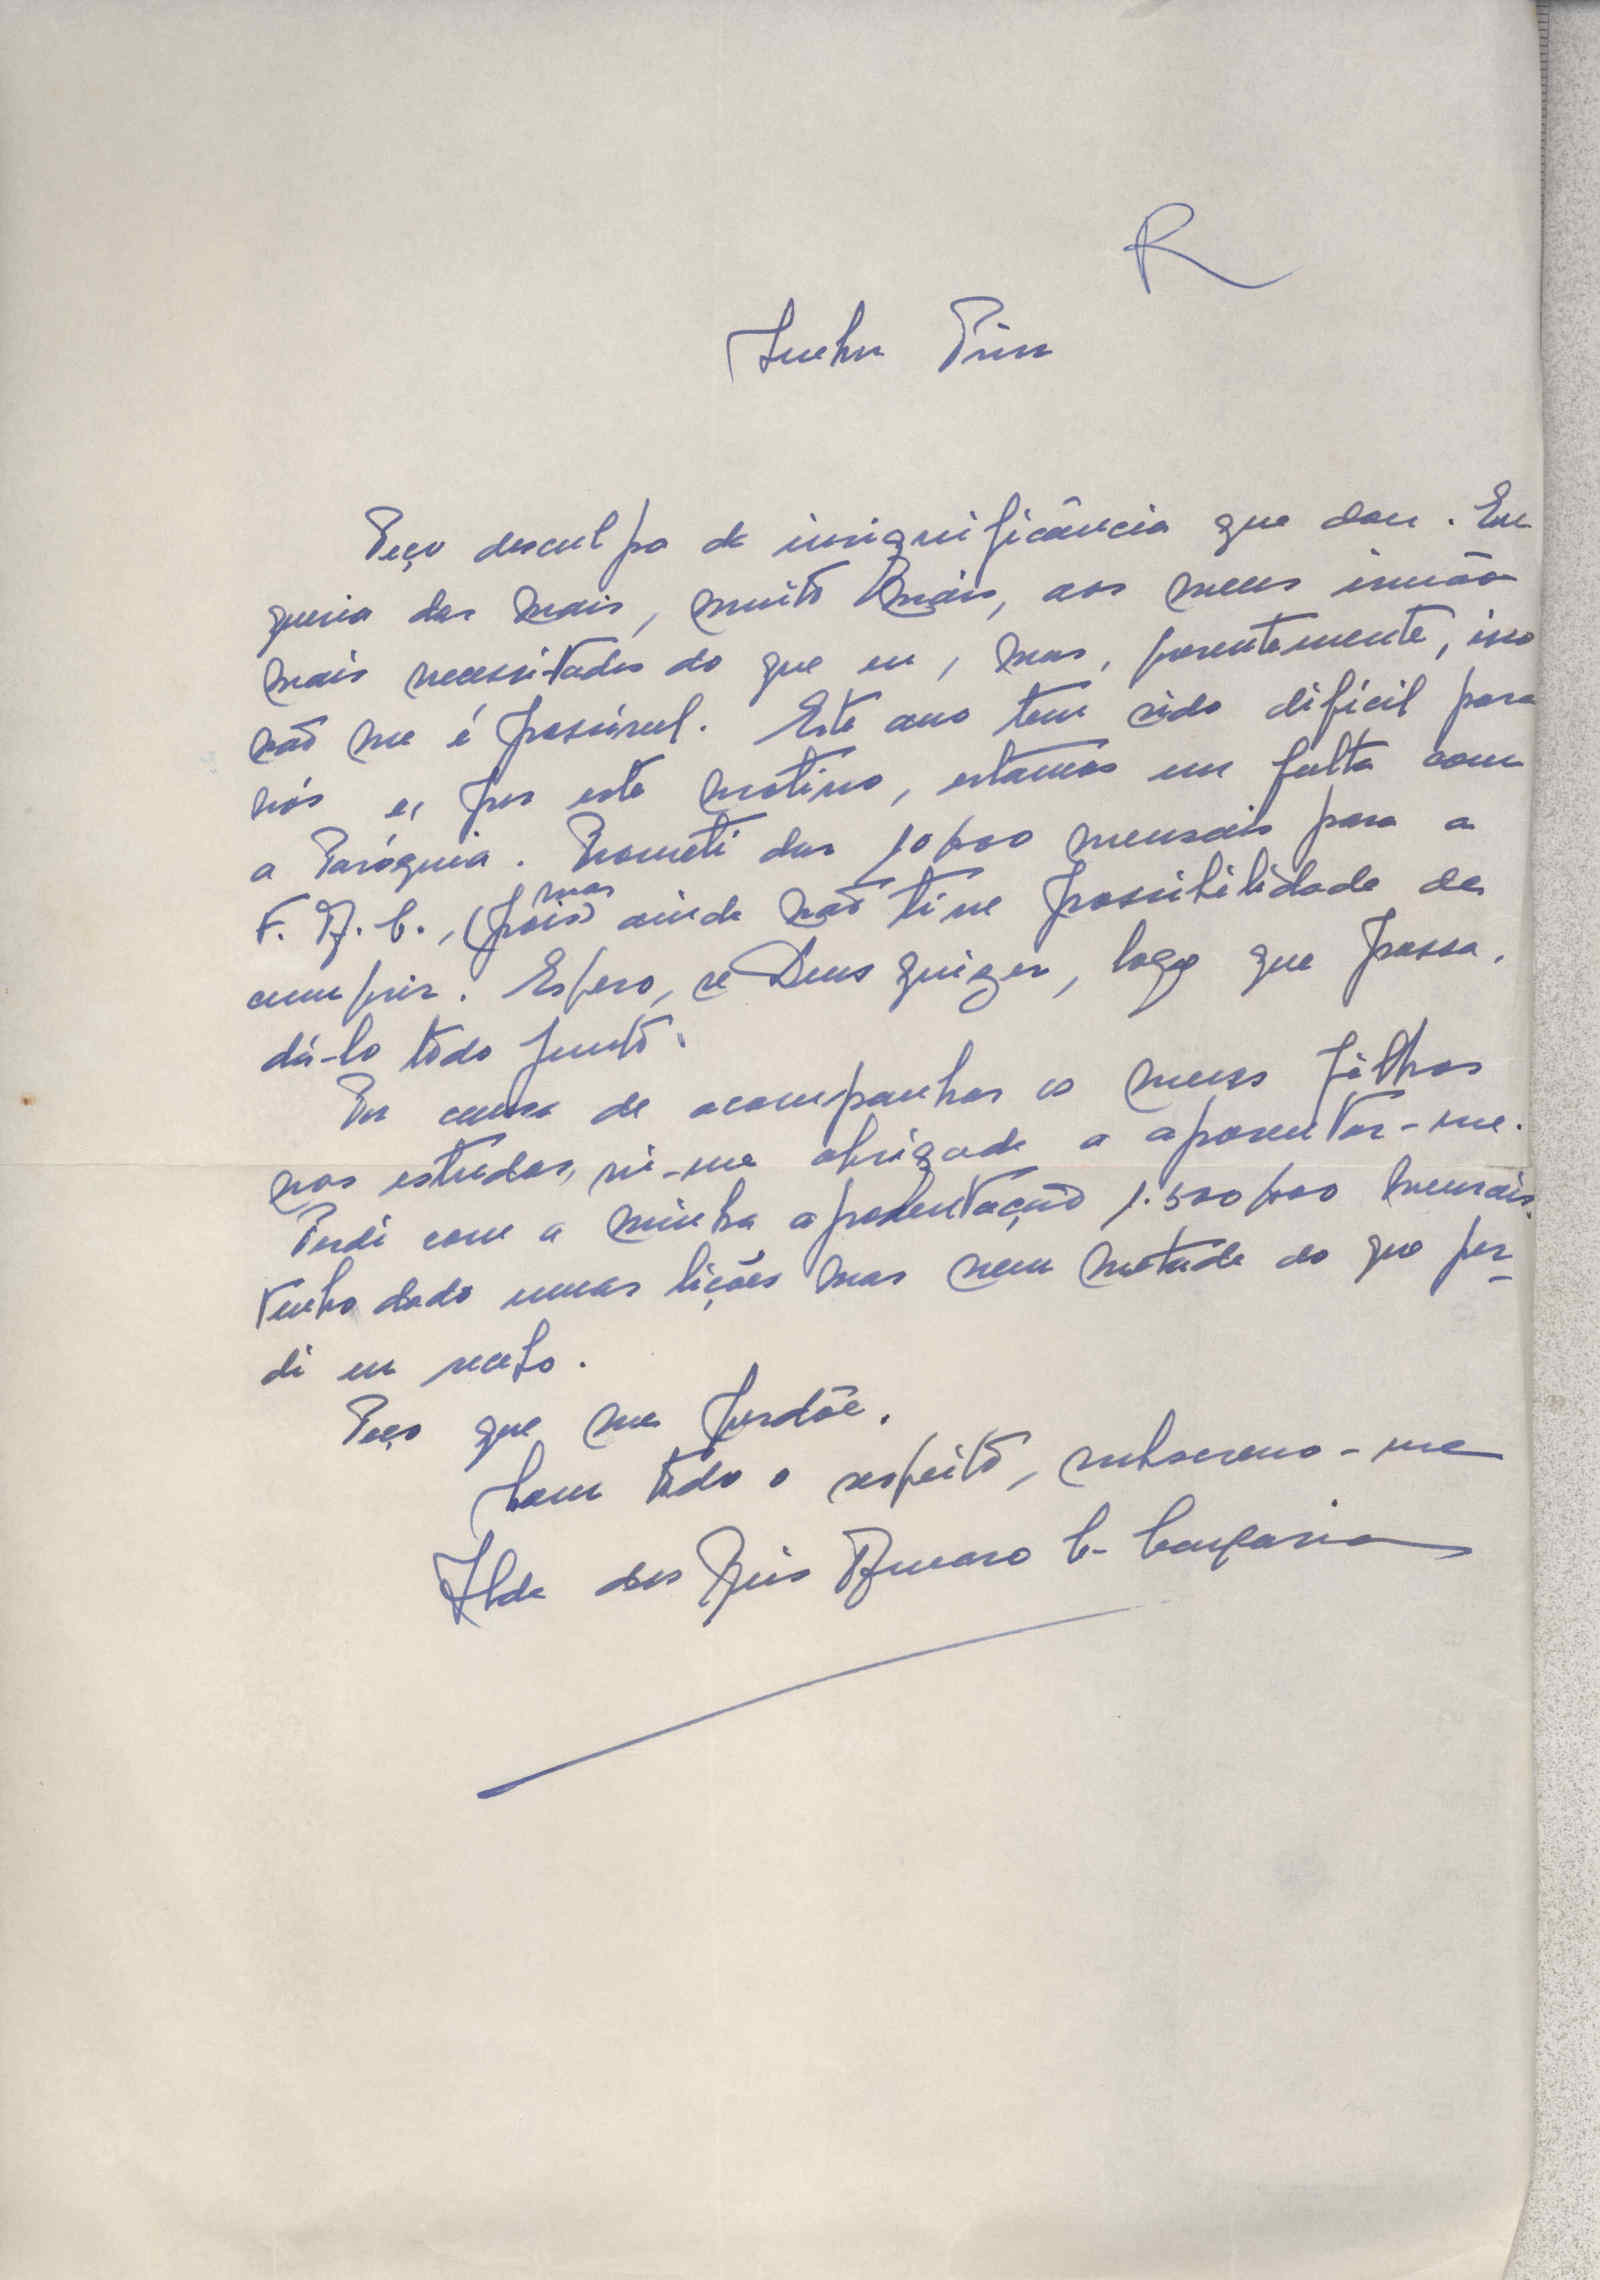 R
Senhor Prior
Peço desculpa da insignificância que dou. Eu
queria dar mais, muito mais, aos meus irmãos
mais necessitados do que eu, mas, presentemente, isso
não me é possível. Este ano tem sido difícil para
nós e, por este motivo, estamos em falta com
a Paróquia. Prometi dar 10$00 mensais para a
F. A. C., (pois) mas ainda não tive possibilidade de
cumprir. Espero, se Deus quizer, logo que possa,
dá-lo todo junto.
Por causa de acompanhar os meus filhos
nos estudos, vi-me obrigada a aposentar-me.
Perdi com a minha aposentação 1.500$00 mensais.
Tenho dado umas lições mas nem metade do que per-
di eu recebo.
Peço que me perdõe.
Com todo o respeito, subscrevo-me
Ilda dos Reis Amaro C.